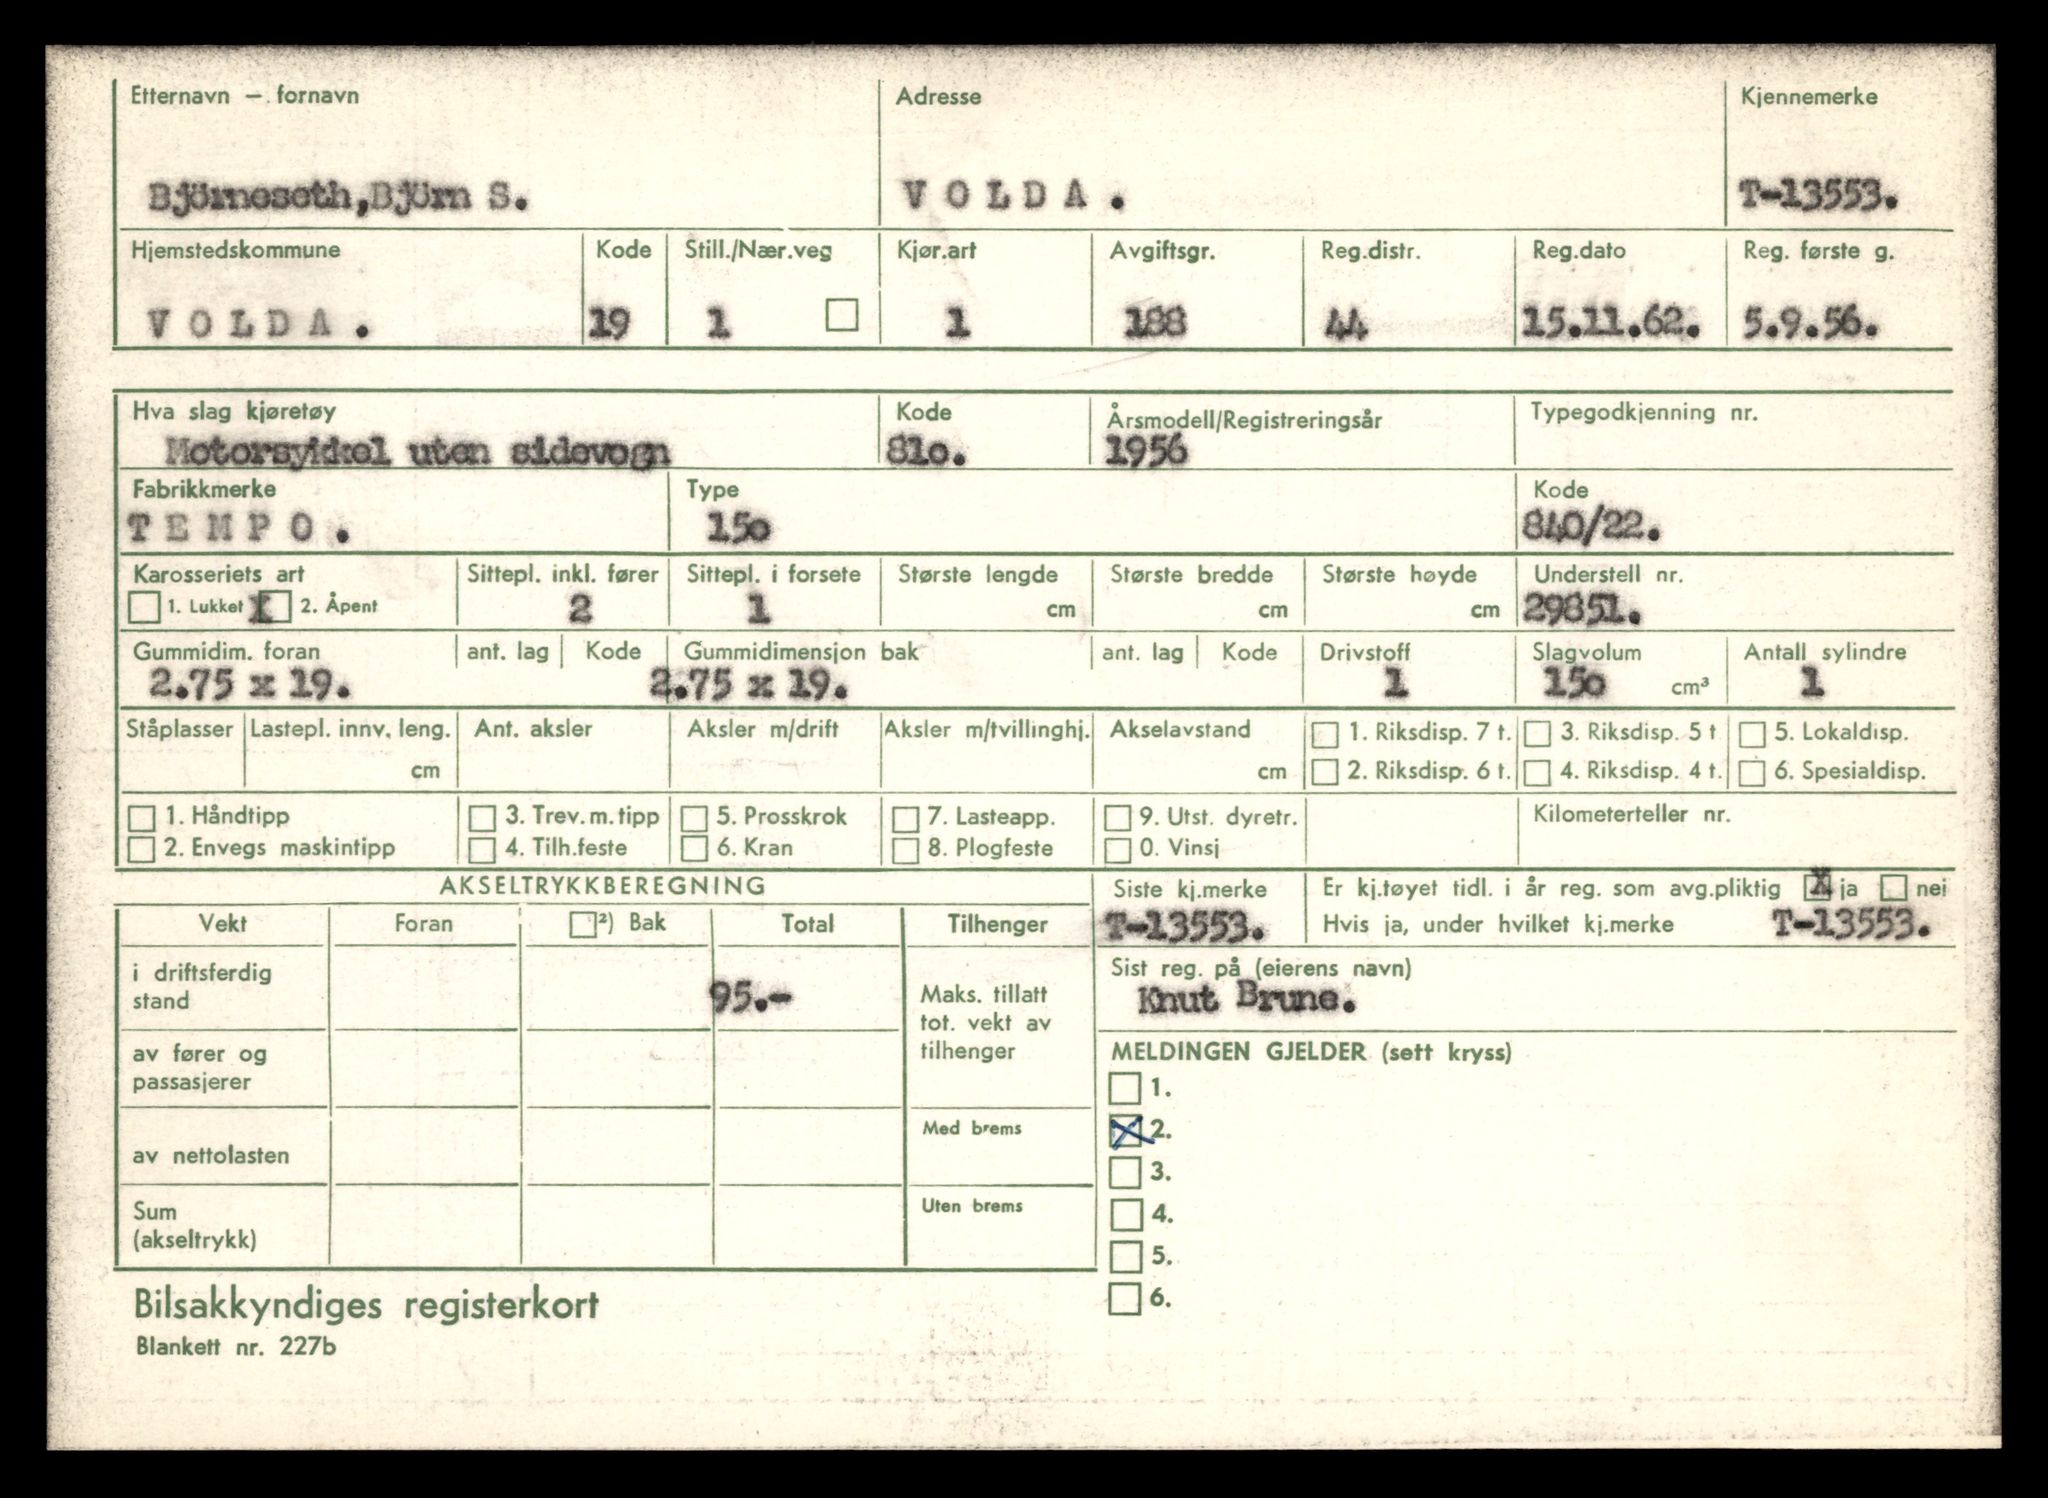 Etternavn — fornavn Adresse Kjennemerke
Björneseth,Björn S. VOLDA. T-13553.
Hjemstedskommune Kode Still./Nær.veg Kjør.art Avgiftsgr. Reg.distr. Reg.dato Reg. første g.
VOLDA. 19 1 1 188 44 15.11.62. 5.9.56.
Hva slag kjøretøy Kode Årsmodell/Registreringsår Typegodkjenning nr.
Motorsykkel uten sidevogn 81o. 1956
Fabrikkmerke Type Kode
TEMPO. 15o 840/22.
Karosseriets art Sittepl. inkl. fører Sittepl. i forsete Største lengde Største bredde Største høyde Understell nr.
1. Lukket X 2. Åpent 2 1 cm cm cm 29851.
Gummidim. foran ant. lag Kode Gummidimensjon bak ant. lag Kode Drivstoff Slagvolum Antall sylindre
2.75 x 19. 2.75 x 19. 1 15o cm³ 1
Ståplasser Lastepl. innv. leng. Ant. aksler Aksler m/drift Aksler m/tvillinghj. Akselavstand 1. Riksdisp. 7 t. 3. Riksdisp. 5 t 5. Lokaldisp.
cm cm 2. Riksdisp. 6 t. 4. Riksdisp. 4 t. 6. Spesialdisp.
1. Håndtipp 3. Trev. m. tipp 5. Prosskrok 7. Lasteapp. 9. Utst. dyretr. Kilometerteller nr.
2. Envegs maskintipp 4. Tilh.feste 6. Kran 8. Plogfeste 0. Vinsj
AKSELTRYKKBEREGNING Siste kj.merke Er kj.tøyet tidl. i år reg. som avg.pliktig X ja nei
Vekt Foran ²) Bak Total Tilhenger T-13553. Hvis ja, under hvilket kj.merke T-13553.
i driftsferdig stand 95.- Maks. tillatt tot. vekt av tilhenger Sist reg. på (eierens navn)
Knut Brune.
av fører og passasjerer MELDINGEN GJELDER (sett kryss)
1.
av nettolasten Med brems X 2.
3.
Sum (akseltrykk) Uten brems 4.
5.
6.
Bilsakkyndiges registerkort
Blankett nr. 227b